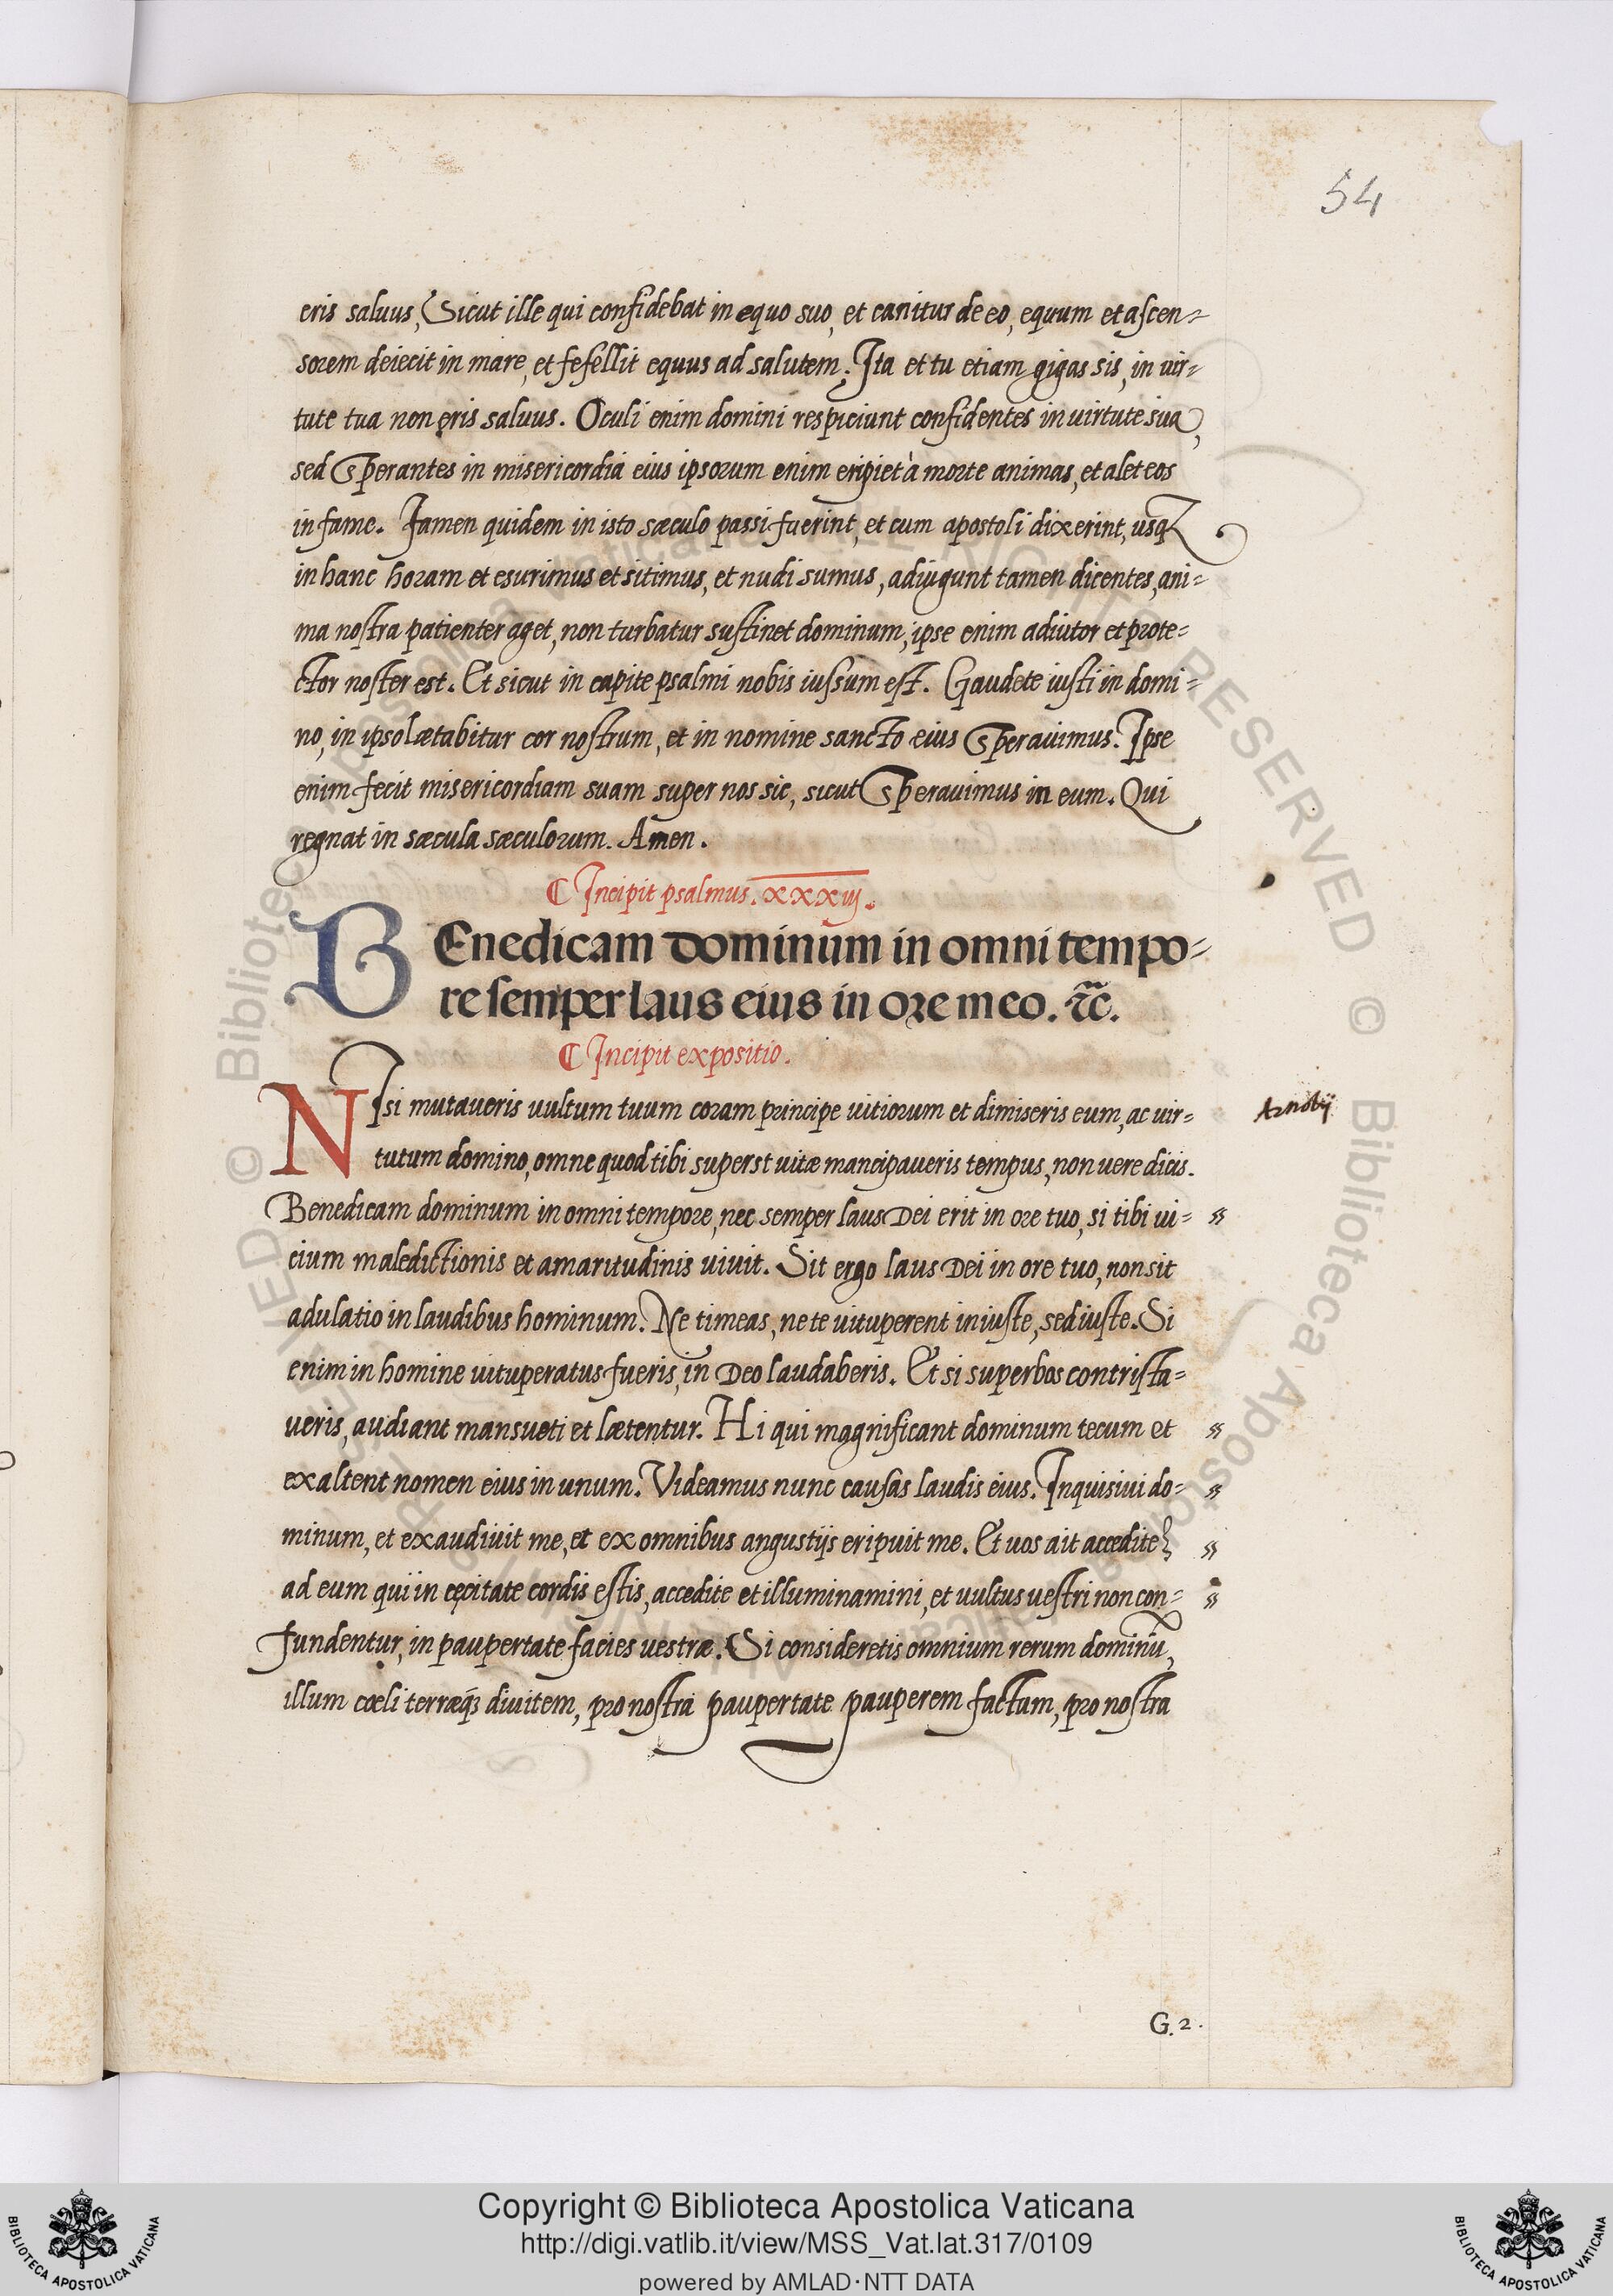 54
eris saluus, Sicut ille qui confidebat in equo suo, et canitur de eo, equum et ascen=
sorem deiecit in mare, et fefellit equus ad salutem. Ita et tu etiam gigas sis, in uir=
tute tua non eris saluus. Oculi enim domini respiciunt confidentes in uirtute sua,
sed Sperantes in misericordia eius ipsorum enim eripiet à morte animas, et alet eos
in fame. Famen quidem in isto sæculo passi fuerint, et cum apostoli dixerint, usqꝫ
in hanc horam et esurimus et sitimus, et nudi sumus, adiugunt tamen dicentes, ani=
ma nostra patienter aget, non turbatur sustinet dominum, ipse enim adiutor et prote=
ctor noster est. Et sicut in capite psalmi nobis iussum est. Gaudete iusti in domi=
no, in ipso lætabitur cor nostrum, et in nomine sancto eius Sperauimus. Ipse
enim fecit misericordiam suam super nos sic, sicut Sperauimus in eum. Qui
regnat in sæcula sæculorum. Amen.
Incipit psalmus. xxxiij.
BEnedicam dominum in omni tempo=
re semper laus eius in ore meo. &c.
Incipit expositio.
NIsi mutaueris uultum tuum coram principe uitiorum et dimiseris eum, ac uir=
Arnobij
tutum domino, omne quod tibi superst uitæ mancipaueris tempus, non uere dicis.
Benedicam dominum in omni tempore, nec semper laus Dei erit in ore tuo, si tibi ui= »
cium maledictionis et amaritudinis uiuit. Sit ergo laus Dei in ore tuo, non sit
adulatio in laudibus hominum. Ne timeas, ne te uituperent iniuste, sed iuste. Si
enim in homine uituperatus fueris, in Deo laudaberis. Et si superbos contrista=
ueris, audiant mansueti et lætentur. Hi qui magnificant dominum tecum et »
exaltent nomen eius in unum. Videamus nunc causas laudis eius. Inquisiui do= »
minum, et exaudiuit me, et ex omnibus angustijs eripuit me. Et uos ait accedite »
ad eum qui in cęcitate cordis estis, accedite et illuminamini, et uultus uestri non con= »
fundentur, in paupertate facies uestræ. Si consideretis omnium rerum dominū,
illum cœli terræqꝫ diuitem, pro nostra paupertate pauperem factum, pro nostra
G. 2.
Copyright © Biblioteca Apostolica Vaticana
http://digi.vatlib.it/view/MSS_Vat.lat.317/0109
powered by AMLAD·NTT DATA
BIBLIOTECA APOSTOLICA VATICANA
BIBLIOTECA APOSTOLICA VATICANA